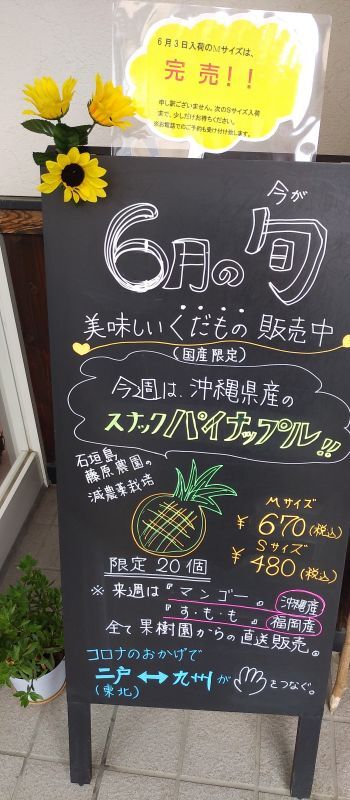 6月3日入荷のMサイズは、
完売!!
申し訳ございません。次のSサイズ入荷
まで、少しだけお待ちください。
※お電話でのご予約も受け付け致します。
今が
6月の旬
美味しいくだもの販売中
(国産限定)
今週は、沖縄県産の
スナックパイナップル!!
石垣島
藤原農園の
減農薬栽培
Mサイズ
¥670(税込)
Sサイズ
¥480(税込)
限定20個
※来週は『マンゴー』沖縄産
『すもも』福岡産
全て果樹園からの直送販売。
コロナのおかげで
二戸↔九州が
(東北)
をつなぐ。